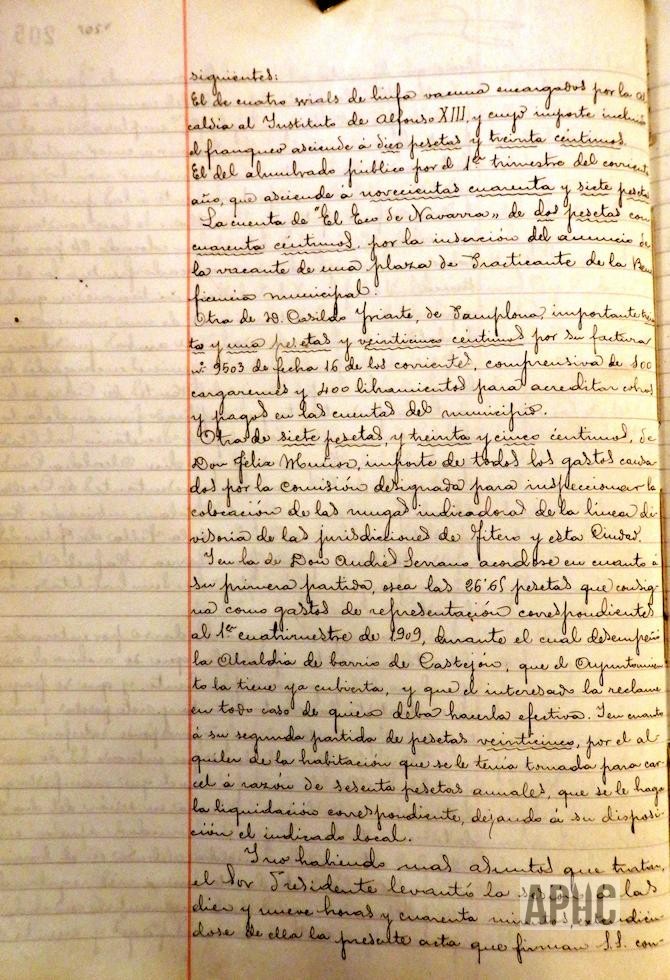 siguientes:
El de cuatro vials de linfa vacuna encargados por la al
caldía al Instituto de Alfonso XIII, y cuyo importe inclui
el franqueo asciende á diez pesetas y treinta céntimos.
El del alumbrado público por el 1er trimestre del corriente
año, que asciende á novecientas cuarenta y siete pesetas
La cuenta de "El Eco de Navarra" de dos pesetas con
cuarenta céntimos, por la inserción del anuncio de
la vacante de una plaza de Practicante de la Bene
ficencia municipal.
Otra de D. Casildo Iriarte, de Pamplona, importante trein
ta y una pesetas y veinticinco céntimos por su factura
nº 9503 de fecha 16 de los corrientes, comprensiva de 400
cargaremes y 400 libramientos para acreditar cobros
y pagos en las cuentas del municipio.
Otra de siete pesetas, y treinta y cinco céntimos, de
Don Felix Muñoz, importe de todos los gastos causa
dos por la comisión designada para inspeccionar la
colocación de las mugas indicadoras de la linea di
visoria de las jurisdicciones de Fitero y esta Ciudad.
Y en la de Don Andrés Serrano acordose en cuanto á
su primera partida, osea las 26'65 pesetas que consig
na como gastos de representación correspondientes
al 1er cuatrimestre de 1909, durante el cual desempeño
la Alcaldía de barrio de Castejón, que el Ayuntamien
to la tiene ya cubierta, y que el interesado la reclame
en todo caso de quien deba hacerla efectiva. Y en cuanto
á su segunda partida de pesetas veinticinco, por el al
quiler de la habitación que se le tenia tomada para car
cel á razón de sesenta pesetas anuales, que se le haga
la liquidación correspondiente, dejando á su disposi
ción el indicado local.
Y no habiendo mas asuntos que tratar,
el Sor Presidente levantó la á las
diez y nueve horas y cuarenta minutos, extendién
dose de ella la presente acta que firman S.S. con-
APHC
205